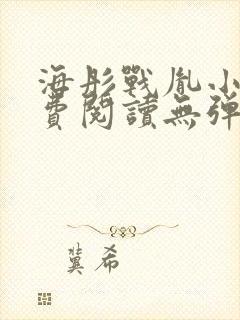 海彤戰胤小
費閱讀無彈
冀希